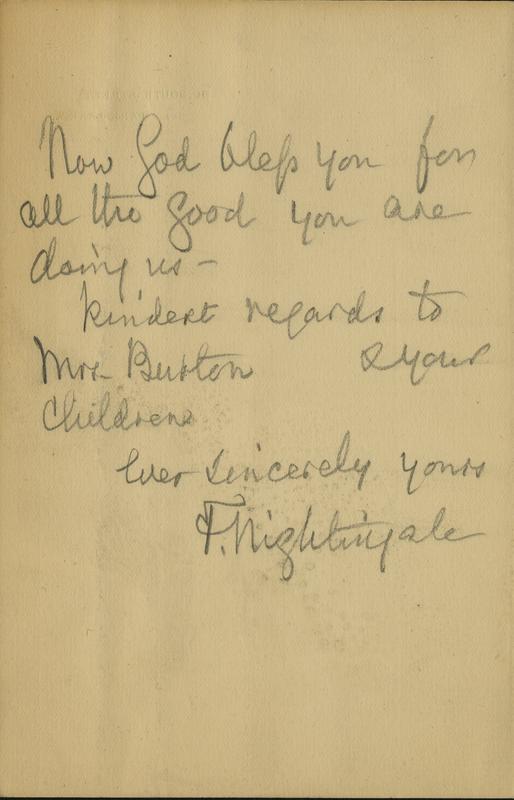 Now God bless you for
all the good you are
doing us -
kindest regards to
Mrs. Burton & your
children
Ever sincerely yours
F. Nightingale